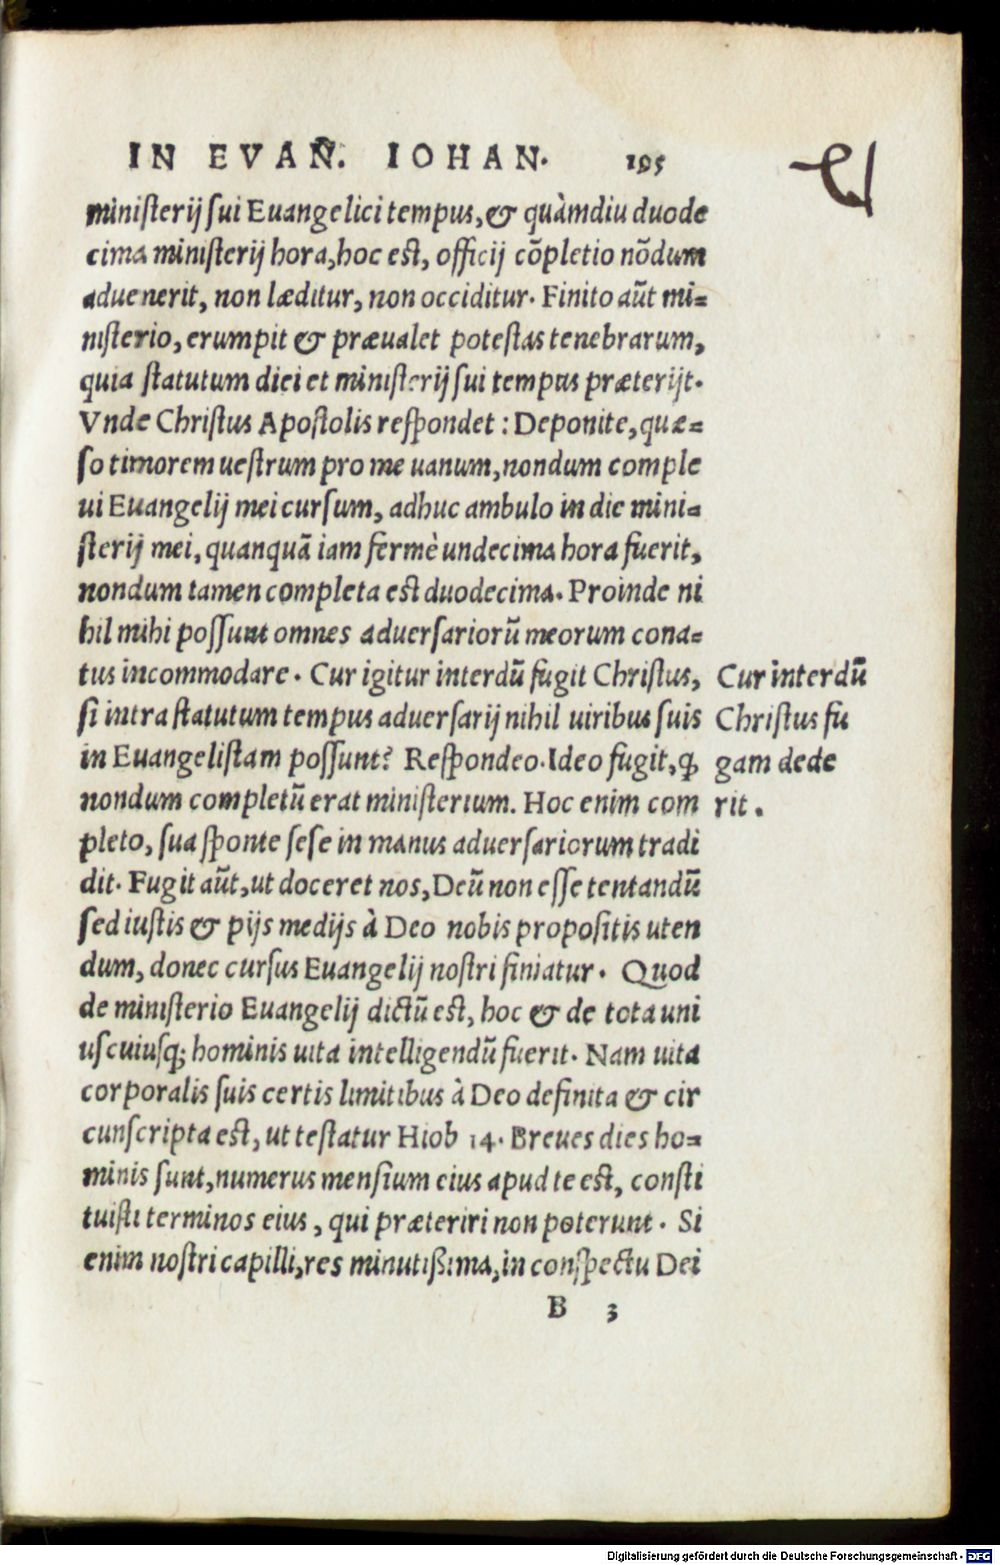 IN EVAÑ. IOHAN. 195
ministerij sui Euangelici tempus, & quàmdiu duode
cima ministerij hora, hoc est, officij cōpletio nōdum
aduenerit, non læditur, non occiditur. Finito aūt mi-
nisterio, erumpit & præualet potestas tenebrarum,
quia statutum diei et ministerij sui tempus præterijt.
Vnde Christus Apostolis respondet : Deponite, quæ-
so timorem uestrum pro me uanum, nondum comple
ui Euangelij mei cursum, adhuc ambulo in die mini-
sterij mei, quanquā iam fermè undecima hora fuerit,
nondum tamen completa est duodecima. Proinde ni
hil mihi possunt omnes aduersariorū meorum cona-
tus incommodare. Cur igitur interdū fugit Christus,
si intra statutum tempus aduersarij nihil uiribus suis
in Euangelistam possunt? Respondeo. Ideo fugit, ꝙ
nondum completū erat ministerium. Hoc enim com
pleto, sua sponte sese in manus aduersariorum tradi
dit. Fugit aūt, ut doceret nos, Deū non esse tentandū
sed iustis & pijs medijs à Deo nobis propositis uten
dum, donec cursus Euangelij nostri finiatur. Quod
de ministerio Euangelij dictū est, hoc & de tota uni
uscuiusq; hominis uita intelligendū fuerit. Nam uita
corporalis suis certis limitibus à Deo definita & cir
cunscripta est, ut testatur Hiob 14. Breues dies ho-
minis sunt, numerus mensium eius apud te est, consti
tuisti terminos eius, qui præteriri non poterunt. Si
enim nostri capilli, res minutißima, in conspectu Dei
B 3
Cur interdū
Christus fu
gam dede
rit.
Digitalisierung gefördert durch die Deutsche Forschungsgemeinschaft - DFG